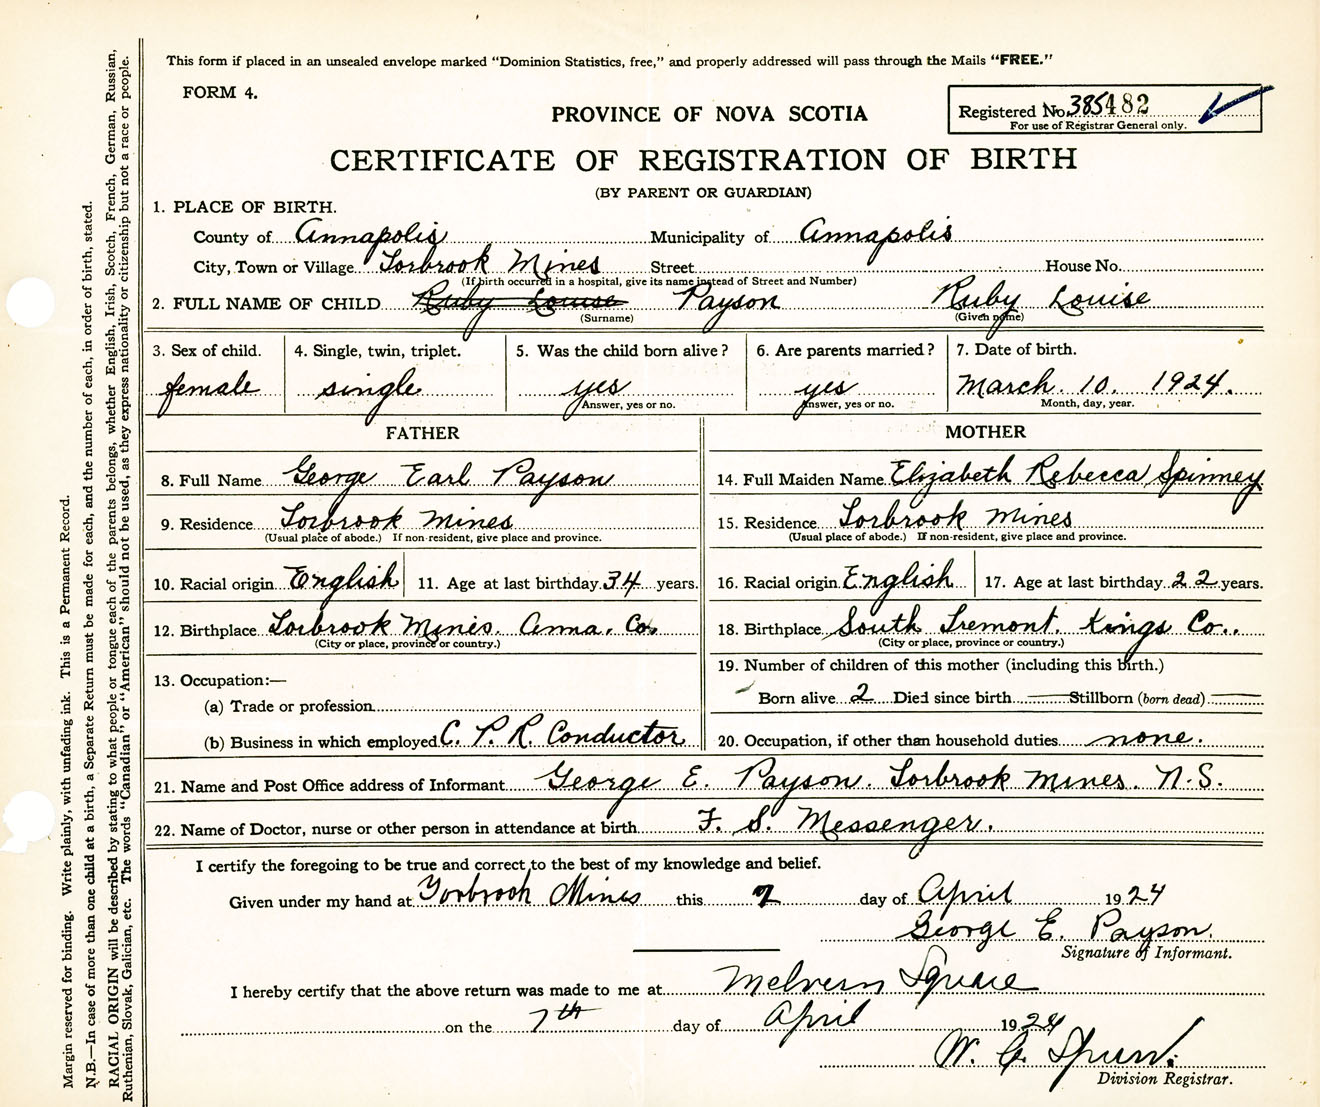 This form if placed in an unsealed envelope marked "Dominion Statistics, free," and properly addressed will pass through the Mails "FREE."
FORM 4.
PROVINCE OF NOVA SCOTIA
Registered No. 385482
For use of Registrar General only.
CERTIFICATE OF REGISTRATION OF BIRTH
(BY PARENT OR GUARDIAN)
1. PLACE OF BIRTH.
County of Annapolis Municipality of Annapolis
City, Town or Village Torbrook Mines Street House No.
(If birth occurred in a hospital, give its name instead of Street and Number)
2. FULL NAME OF CHILD Ruby Louise Payson Ruby Louise
(Surname) (Given name)
3. Sex of child. 4. Single, twin, triplet. 5. Was the child born alive? 6. Are parents married? 7. Date of birth.
female single yes yes March. 10. 1924.
Answer, yes or no. Answer, yes or no. Month, day, year.
FATHER MOTHER
8. Full Name George Earl Payson 14. Full Maiden Name Elizabeth Rebecca Spinney
9. Residence Torbrook Mines 15. Residence Torbrook Mines
(Usual place of abode.) If non-resident, give place and province. (Usual place of abode.) If non-resident, give place and province.
10. Racial origin English 11. Age at last birthday 34 years. 16. Racial origin English 17. Age at last birthday 22 years.
12. Birthplace Torbrook Mines. Anna. Co. 18. Birthplace South Tremont. Kings Co.
(City or place, province or country.) (City or place, province or country.)
13. Occupation:— 19. Number of children of this mother (including this birth.)
(a) Trade or profession Born alive 2 Died since birth Stillborn (born dead)
(b) Business in which employed C. P. R. Conductor 20. Occupation, if other than household duties none.
21. Name and Post Office address of Informant George E. Payson. Torbrook Mines. N.S.
22. Name of Doctor, nurse or other person in attendance at birth F. S. Messenger.
I certify the foregoing to be true and correct to the best of my knowledge and belief.
Given under my hand at Torbrook Mines this 7 day of April 1924
George E. Payson.
Signature of Informant.
I hereby certify that the above return was made to me at Melvern Square
on the 7th day of April 1924
W. Spurr
Division Registrar.
Margin reserved for binding. Write plainly, with unfading ink. This is a Permanent Record.
N.B.—In case of more than one child at a birth, a Separate Return must be made for each, and the number of each, in order of birth, stated.
RACIAL ORIGIN will be described by stating to what people or tongue each of the parents belongs, whether English, Irish, Scotch, French, German, Russian,
Ruthenian, Slovak, Galician, etc. The words "Canadian" or "American" should not be used, as they express nationality or citizenship but not a race or people.